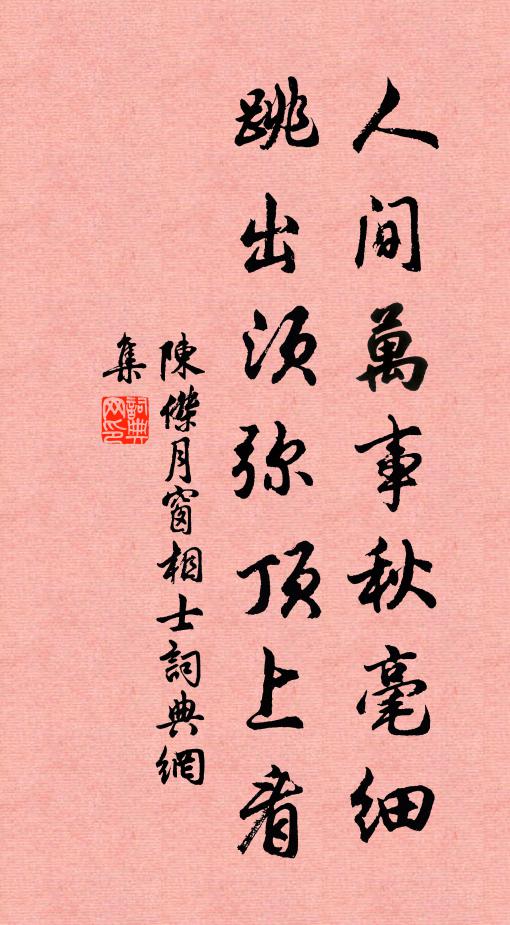 人间萬事秋毫细
跳出须弥顶上看
陳傑月窗相士詞典網
集
詞典
网印